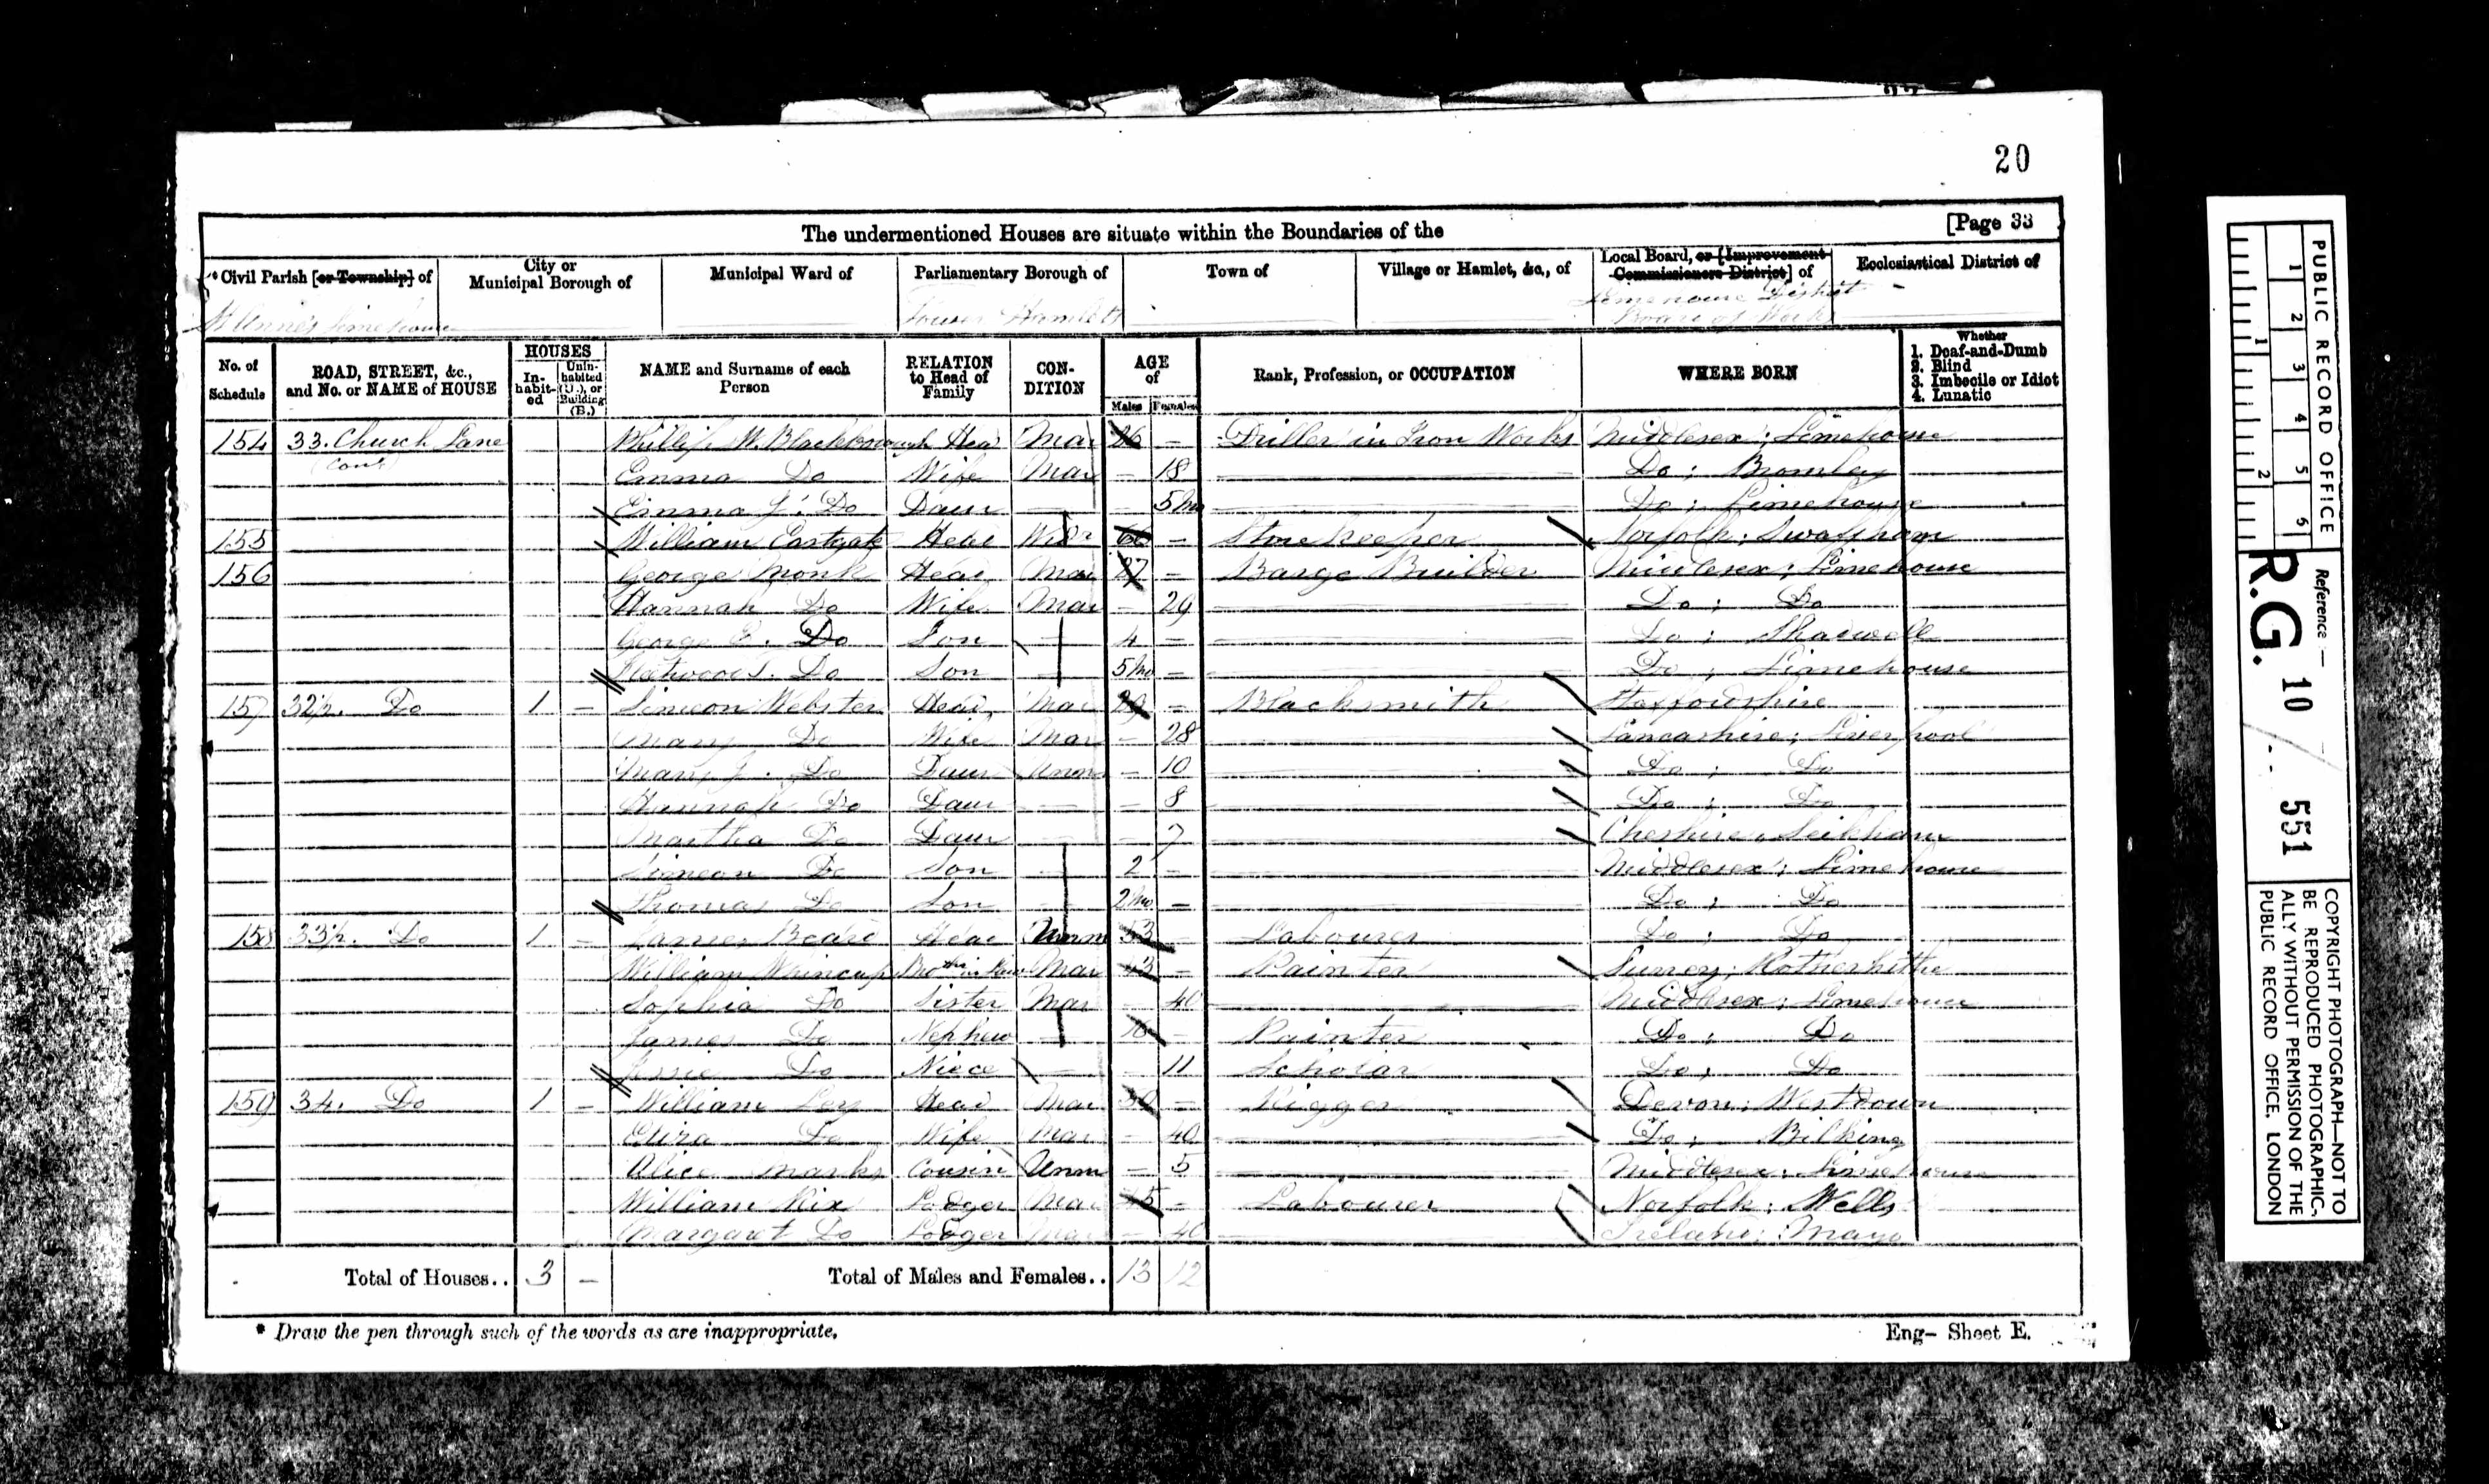 20
The undermentioned Houses are situate within the Boundaries of the [Page 33
* Civil Parish [or Township] of City or Municipal Borough of Municipal Ward of Parliamentary Borough of Town of Village or Hamlet, &c., of Local Board, or [Improvement Commissioners District] of Ecclesiastical District of
St Anne's Limehouse Tower Hamlets Limehouse District Board of Works
No. of Schedule ROAD, STREET, &c., and No. or NAME of HOUSE HOUSES Inhabited Uninhabited (U.), or Building (B.) NAME and Surname of each Person RELATION to Head of Family CONDITION AGE of Males Females Rank, Profession, or OCCUPATION WHERE BORN Whether 1. Deaf-and-Dumb 2. Blind 3. Imbecile or Idiot 4. Lunatic
154 33. Church Lane (Cont) Phillip M. Blackborough Head Mar 26 – Driller in Iron Works Middlesex; Limehouse
Emma Do Wife Mar – 18 Do; Bromley
Emma J. Do Daur 5 mo Do; Limehouse
155 William Eastgate Head Widr – Store Keeper Norfolk; Swaffham
156 George Monk Head Mar 27 – Barge Builder Middlesex; Limehouse
Hannah Do Wife Mar – 29 Do; Do
George E. Do Son – 4 – Do; Shadwell
Fleetwood Do Son 5 mo – Do; Limehouse
157 32½. Do 1 – Simeon Webster Head Mar 29 – Blacksmith Staffordshire
Mary Do Wife Mar – 28 Lancashire; Liverpool
Mary J. Do Daur Unm – 10 Do; Do
Hannah Do Daur – – 8 Do; Do
Martha Do Daur – – 7 Cheshire;
Simeon Do Son – 2 – Middlesex; Limehouse
Thomas Do Son – 2 mo – Do; Do
158 33½. Do 1 – James Head Unm 53 – Labourer Do; Do
William Whincup Broth in law Mar 43 – Painter Surrey; Rotherhithe
Sophia Do Sister Mar – 40 Middlesex; Limehouse
James Do Nephew – 16 – Painter Do; Do
Jessie Do Niece – – 11 Scholar Do; Do
159 34. Do 1 – William Ley Head Mar – Rigger Devon; Westdown
Eliza Do Wife Mar – 40 Do;
Alice Marks Cousin Unm – 5 Middlesex; Limehouse
William Rix Lodger Mar – Labourer Norfolk; Wells
Margaret Do Lodger Mar – 40 Ireland; Mayo
Total of Houses.. 3 – Total of Males and Females.. 13 12
* Draw the pen through such of the words as are inappropriate.
Eng– Sheet E.
PUBLIC RECORD OFFICE
1 2 3 4 5 6
1 2
Reference :–
R.G. 10 / 551
COPYRIGHT PHOTOGRAPH—NOT TO
BE REPRODUCED PHOTOGRAPHIC-
ALLY WITHOUT PERMISSION OF THE
PUBLIC RECORD OFFICE, LONDON